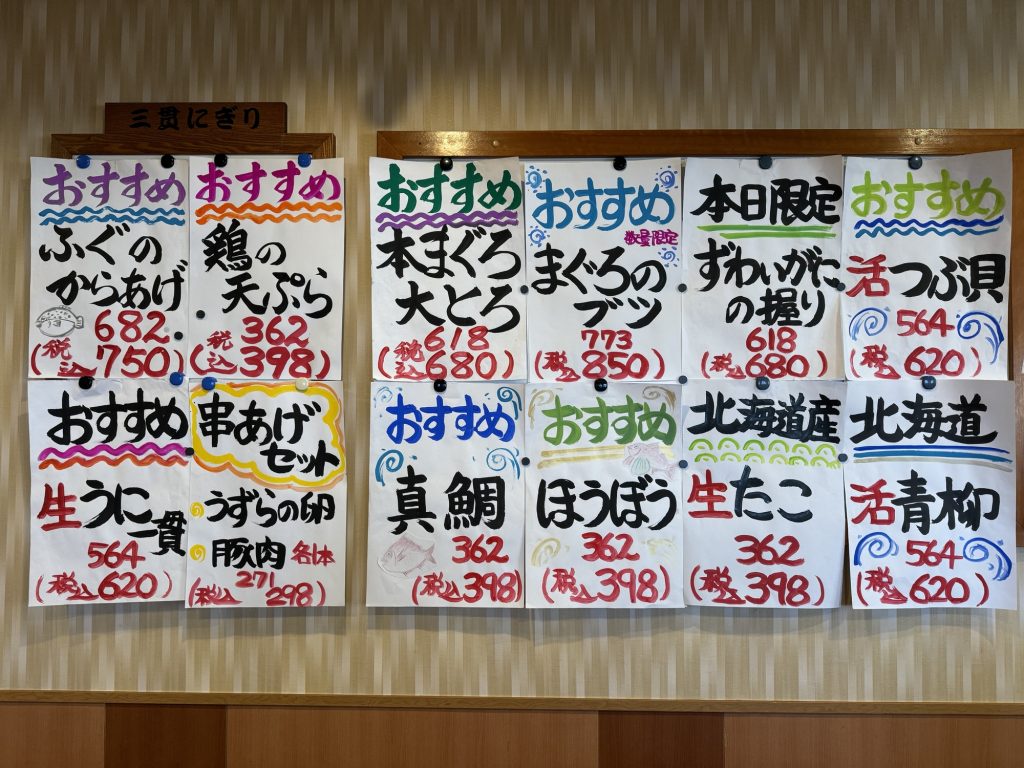 三貫にぎり
おすすめ
ふぐの
からあげ
682
(税込750)
おすすめ
鶏の
天ぷら
362
(税込398)
おすすめ
本まぐろ
大とろ
618
(税込680)
おすすめ
数量限定
まぐろの
ブツ
773
(税込850)
本日限定
ずわいがに
の握り
618
(税込680)
おすすめ
活つぶ貝
564
(税込620)
おすすめ
生うに
一貫
564
(税込620)
串あげ
セット
うずらの卵
豚肉 各1本
271
(税込298)
おすすめ
真鯛
362
(税込398)
おすすめ
ほうぼう
362
(税込398)
北海道産
生たこ
362
(税込398)
北海道
活青柳
564
(税込620)